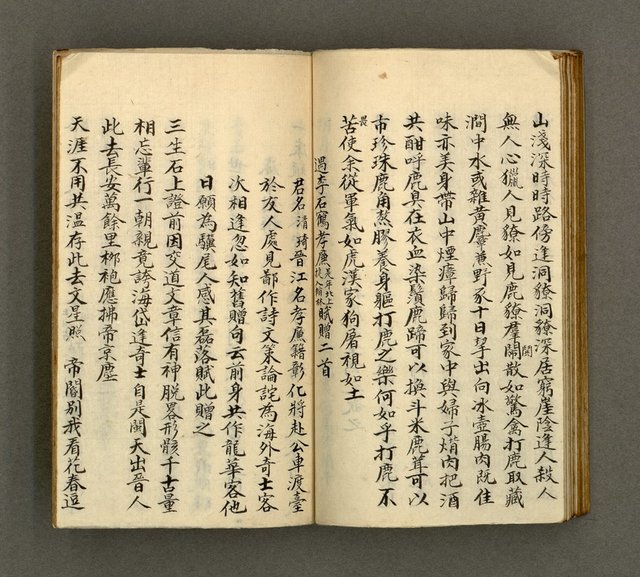 山淺深時時路傍逢洞獠洞獠深居窮崖陰逢人殺人
無人心獵人見獠如見鹿獠羣閧散如驚禽打鹿取藏
閧
澗中水或雜黃麞兼野豕十日挐出向冰壺腸肉既佳
味亦美身帶山中煙瘴歸歸到家中與婦子焇肉把酒
共酣呼鹿具在衣血染鬚鹿蹄可以換斗米鹿茸可以
市珍珠鹿角熬膠養身軀打鹿之樂何如乎打鹿不
苦使余從軍氣如虎漢家狗屠視如土
畏
過李石鶴孝廉賦贈二首
君名清琦晉江名孝廉籍彰化將赴公車渡臺
於友人處見鄙作詩文策論詫為海外奇士客
次相逢忽如知舊贈句云前身共作龍華客他
日願為驥尾人感其磊落賦此贈之
三生石上證前因交道文章信有神脫畧形骸千古量
相忘輩行一朝親竟誇海岱逢奇士自是閩天出晉人
此去長安萬餘里柳袍應拂帝京塵
天涯不用共溫存此去文星照 帝閽別我看花春逗